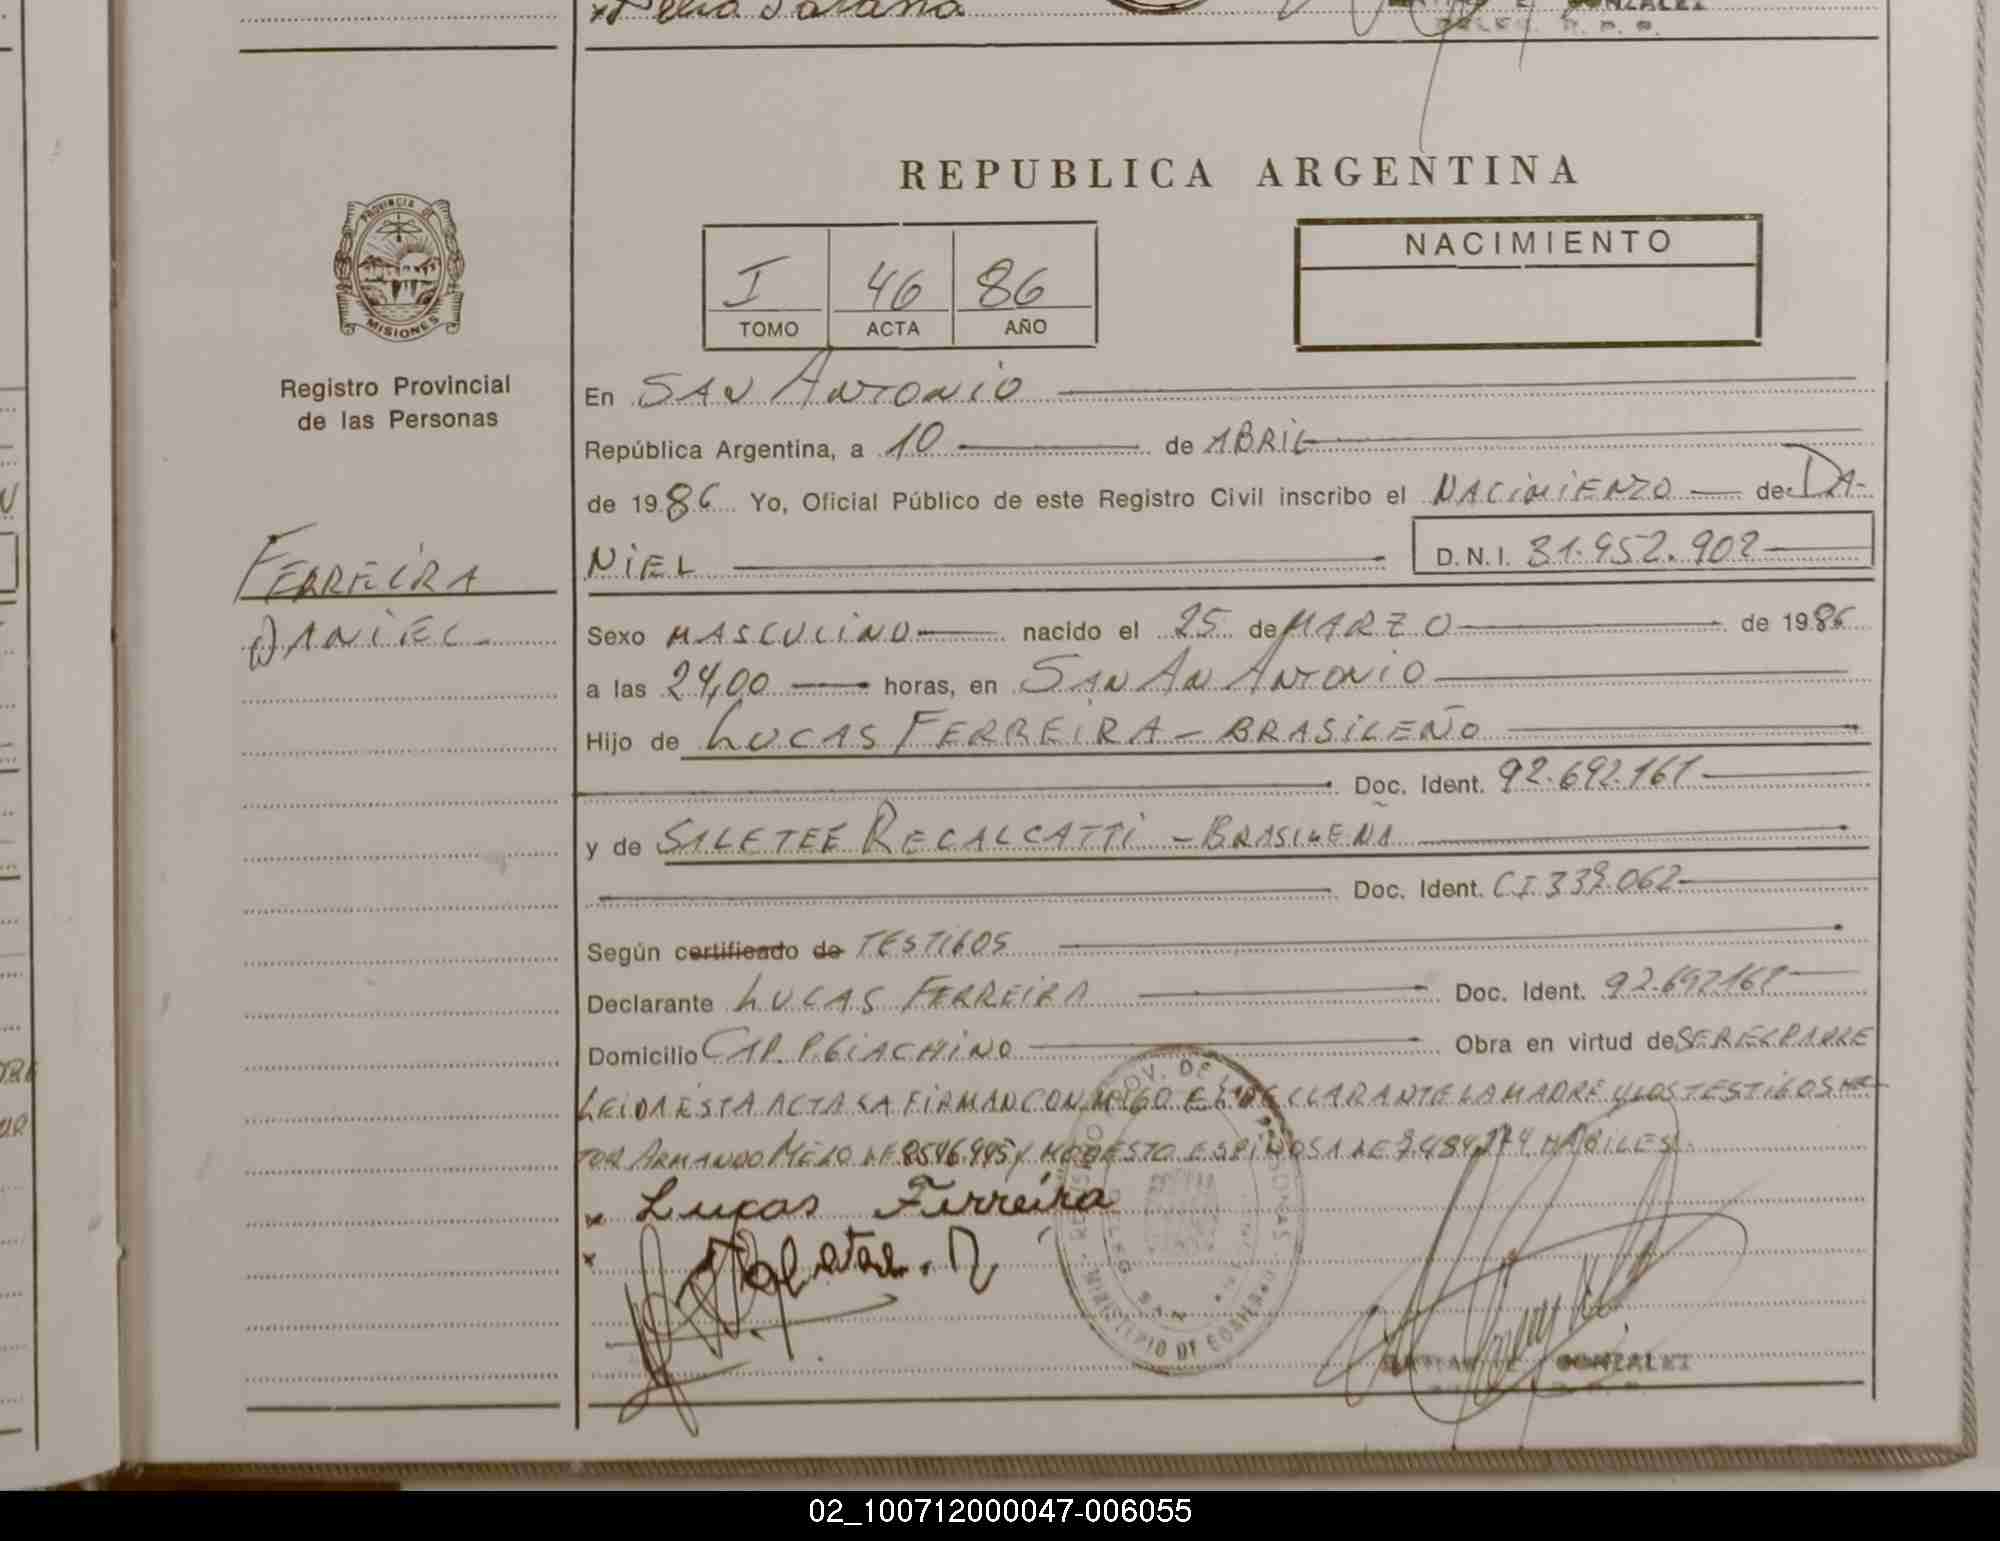 REPUBLICA ARGENTINA
PROVINCIA DE
MISIONES
I 46 86
TOMO ACTA AÑO
NACIMIENTO
Registro Provincial
de las Personas
En SAN ANTONIO
República Argentina, a 10 de ABRIL
de 1986 Yo, Oficial Público de este Registro Civil inscribo el NACIMIENTO de DA-
NIEL D.N.I. 31.952.902
FERREIRA
DANIEL
Sexo MASCULINO nacido el 25 de MARZO de 1986
a las 24,00 horas, en SAN AN ANTONIO
Hijo de LUCAS FERREIRA - BRASILEÑO
Doc. Ident. 92.692.161
y de SALETEE RECALCATTI - BRASILEÑA
Doc. Ident. C.I 339.062
Según certificado de TESTIGOS
Declarante LUCAS FERREIRA Doc. Ident. 92.692161
Domicilio CAP. P. GIACHINO Obra en virtud de SER EL PADRE
LEIDA ESTA ACTA LA FIRMAN CONMIGO EL DECLARANTE LA MADRE Y LOS TESTIGOS HEC-
TOR ARMANDO MELO LE 8546.995 Y MODESTO ESPINOSA LE 7.484.174 HABILES
x Lucas Ferreira
x
MINISTERIO DE GOBIERNO
GONZALEZ
02_100712000047-006055